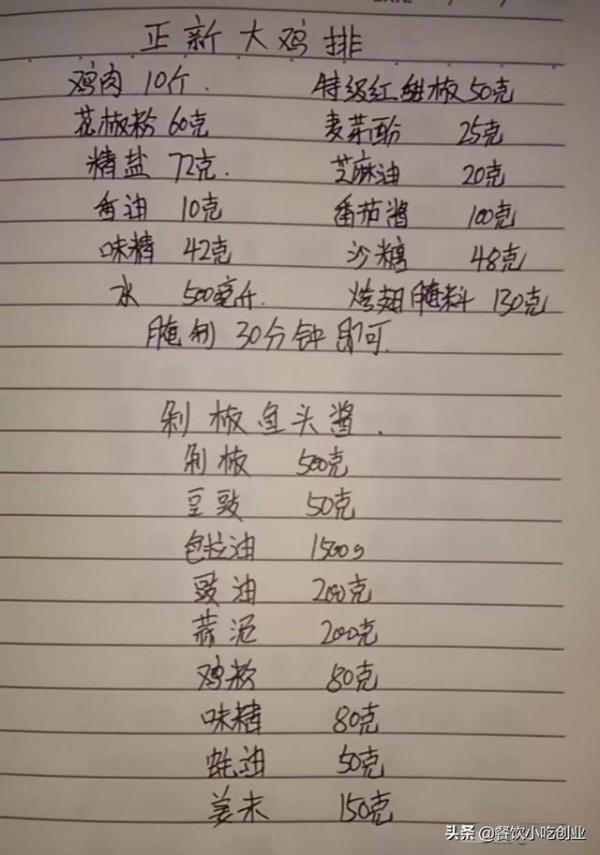 正新大鸡排
鸡肉 10个. 特级红甜椒 50克
花椒粉 60克 麦芽酚 25克
精盐 72克. 芝麻油 20克
香油 10克 番茄酱 100克
味精 42克 沙糖 48克
水 500毫升. 烤翅腌料 130克
腌制 30分钟即可.
剁椒鱼头酱.
剁椒 500克
豆豉 50克
色拉油 1500g
豉油 200克
蒜泥 200克
鸡粉 80克
味精 80克
蚝油 50克
姜末 150克
头条 @餐饮小吃创业